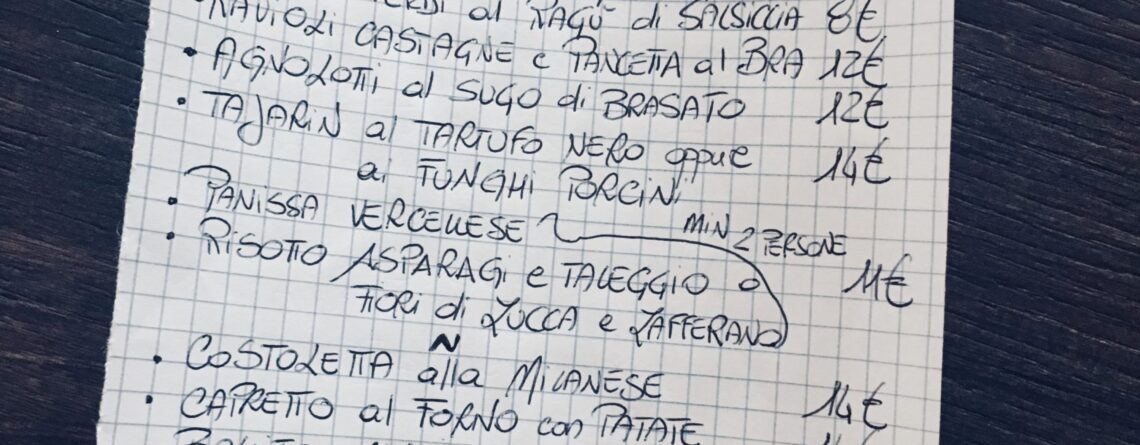 al RAGÙ di SALSICCIA 8€
• RAVIOLI CASTAGNE e PANCETTA al BRA 12€
• AGNOLOTTI al SUGO di BRASATO 12€
• TAJARIN al TARTUFO NERO oppure 14€
ai FUNGHI PORCINI
• PANISSA VERCELLESE MIN 2 PERSONE
• RISOTTO ASPARAGI e TALEGGIO o 11€
FIORI di ZUCCA e ZAFFERANO
• COSTOLETTA alla MILANESE 14€
• CAPRETTO al FORNO con PATATE